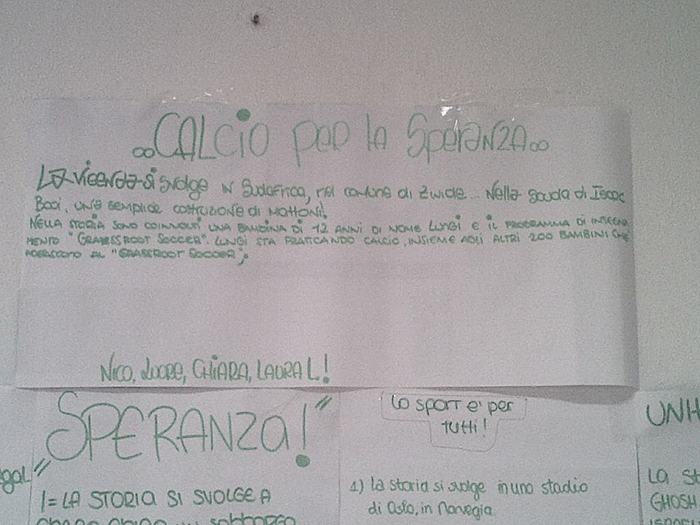 CALCIO per la SperANZA
LA vicenda si svolge IN Sudafrica, nel comune di Zwide... Nella scuola di Isaac
Booi, una semplice costruzione di mattoni!
NELLA STORIA SONO COINVOLTI UNA BAMBINA DI 12 ANNI DI NOME LUNGI E IL PROGRAMMA DI INSEGNA
MENTO "GRASSROOT SOCCER". LUNGI STA PRATICANDO CALCIO, INSIEME AGLI ALTRI 200 BAMBINI CHE
ADERISCONO AL "GRASSROOT SOCCER".
NICO, CHIARA, LAURA L!
SPERANZA!"
Lo sport e' per
tutti!
UNH
gal "
1= LA STORIA SI SVOLGE A
1) la storia si svolge in uno stadio
di Oslo, in Norvegia.
LA ST
GHOSH